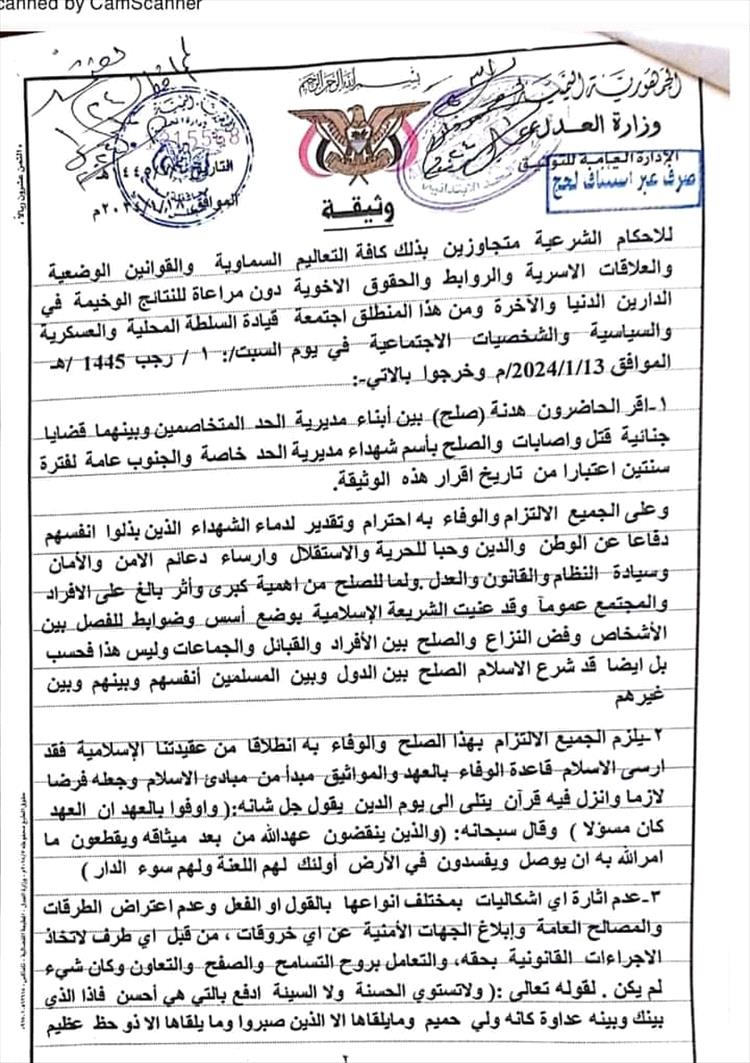 canned by CamScanner
بسم الله الرحمن الرحيم
الجمهورية اليمنية
وزارة العدل
الإدارة العامة للتوثيق
صرف عبر استئناف لحج
التاريخ
الموافق
وثيقة
للاحكام الشرعية متجاوزين بذلك كافة التعاليم السماوية والقوانين الوضعية
والعلاقات الاسرية والروابط والحقوق الاخوية دون مراعاة للنتائج الوخيمة في
الدارين الدنيا والآخرة ومن هذا المنطلق اجتمعة قيادة السلطة المحلية والعسكرية
والسياسية والشخصيات الاجتماعية في يوم السبت/: ١ / رجب 1445 /هـ
الموافق 2024/1/13/م وخرجوا بالاتي-:
١-اقر الحاضرون هدنة (صلح) بين أبناء مديرية الحد المتخاصمين وبينهما قضايا
جنائية قتل واصابات والصلح بأسم شهداء مديرية الحد خاصة والجنوب عامة لفترة
سنتين اعتبارا من تاريخ اقرار هذه الوثيقة.
وعلى الجميع الالتزام والوفاء به احترام وتقدير لدماء الشهداء الذين بذلوا انفسهم
دفاعا عن الوطن والدين وحبا للحرية والاستقلال وارساء دعائم الامن والأمان
وسيادة النظام والقانون والعدل .ولما للصلح من اهمية كبرى وأثر بالغ على الافراد
والمجتمع عموماً وقد عنيت الشريعة الإسلامية بوضع أسس وضوابط للفصل بين
الأشخاص وفض النزاع والصلح بين الأفراد والقبائل والجماعات وليس هذا فحسب
بل ايضا قد شرع الاسلام الصلح بين الدول وبين المسلمين أنفسهم وبينهم وبين
غيرهم
٢-يلزم الجميع الالتزام بهذا الصلح والوفاء به انطلاقا من عقيدتنا الإسلامية فقد
ارسى الاسلام قاعدة الوفاء بالعهد والمواثيق مبدأ من مبادئ الاسلام وجعله فرضا
لازما وانزل فيه قرآن يتلى الى يوم الدين يقول جل شانه:( واوفوا بالعهد ان العهد
كان مسؤلا ) وقال سبحانه: (والذين ينقضون عهدالله من بعد ميثاقه ويقطعون ما
امرالله به ان يوصل ويفسدون في الأرض أولئك لهم اللعنة ولهم سوء الدار )
٣-عدم اثارة اي اشكاليات بمختلف انواعها بالقول او الفعل وعدم اعتراض الطرقات
والمصالح العامة وإبلاغ الجهات الأمنية عن اي خروقات ، من قبل اي طرف لاتخاذ
الاجراءات القانونية بحقه، والتعامل بروح التسامح والصفح والتعاون وكان شيء
لم يكن . لقوله تعالى :( ولاتستوي الحسنة ولا السيئة ادفع بالتي هي أحسن فاذا الذي
بينك وبينه عداوة كانه ولي حميم ومايلقاها الا الذين صبروا وما يلقاها الا ذو حظ عظيم
٢
« الثمن عشرون ريالاً »